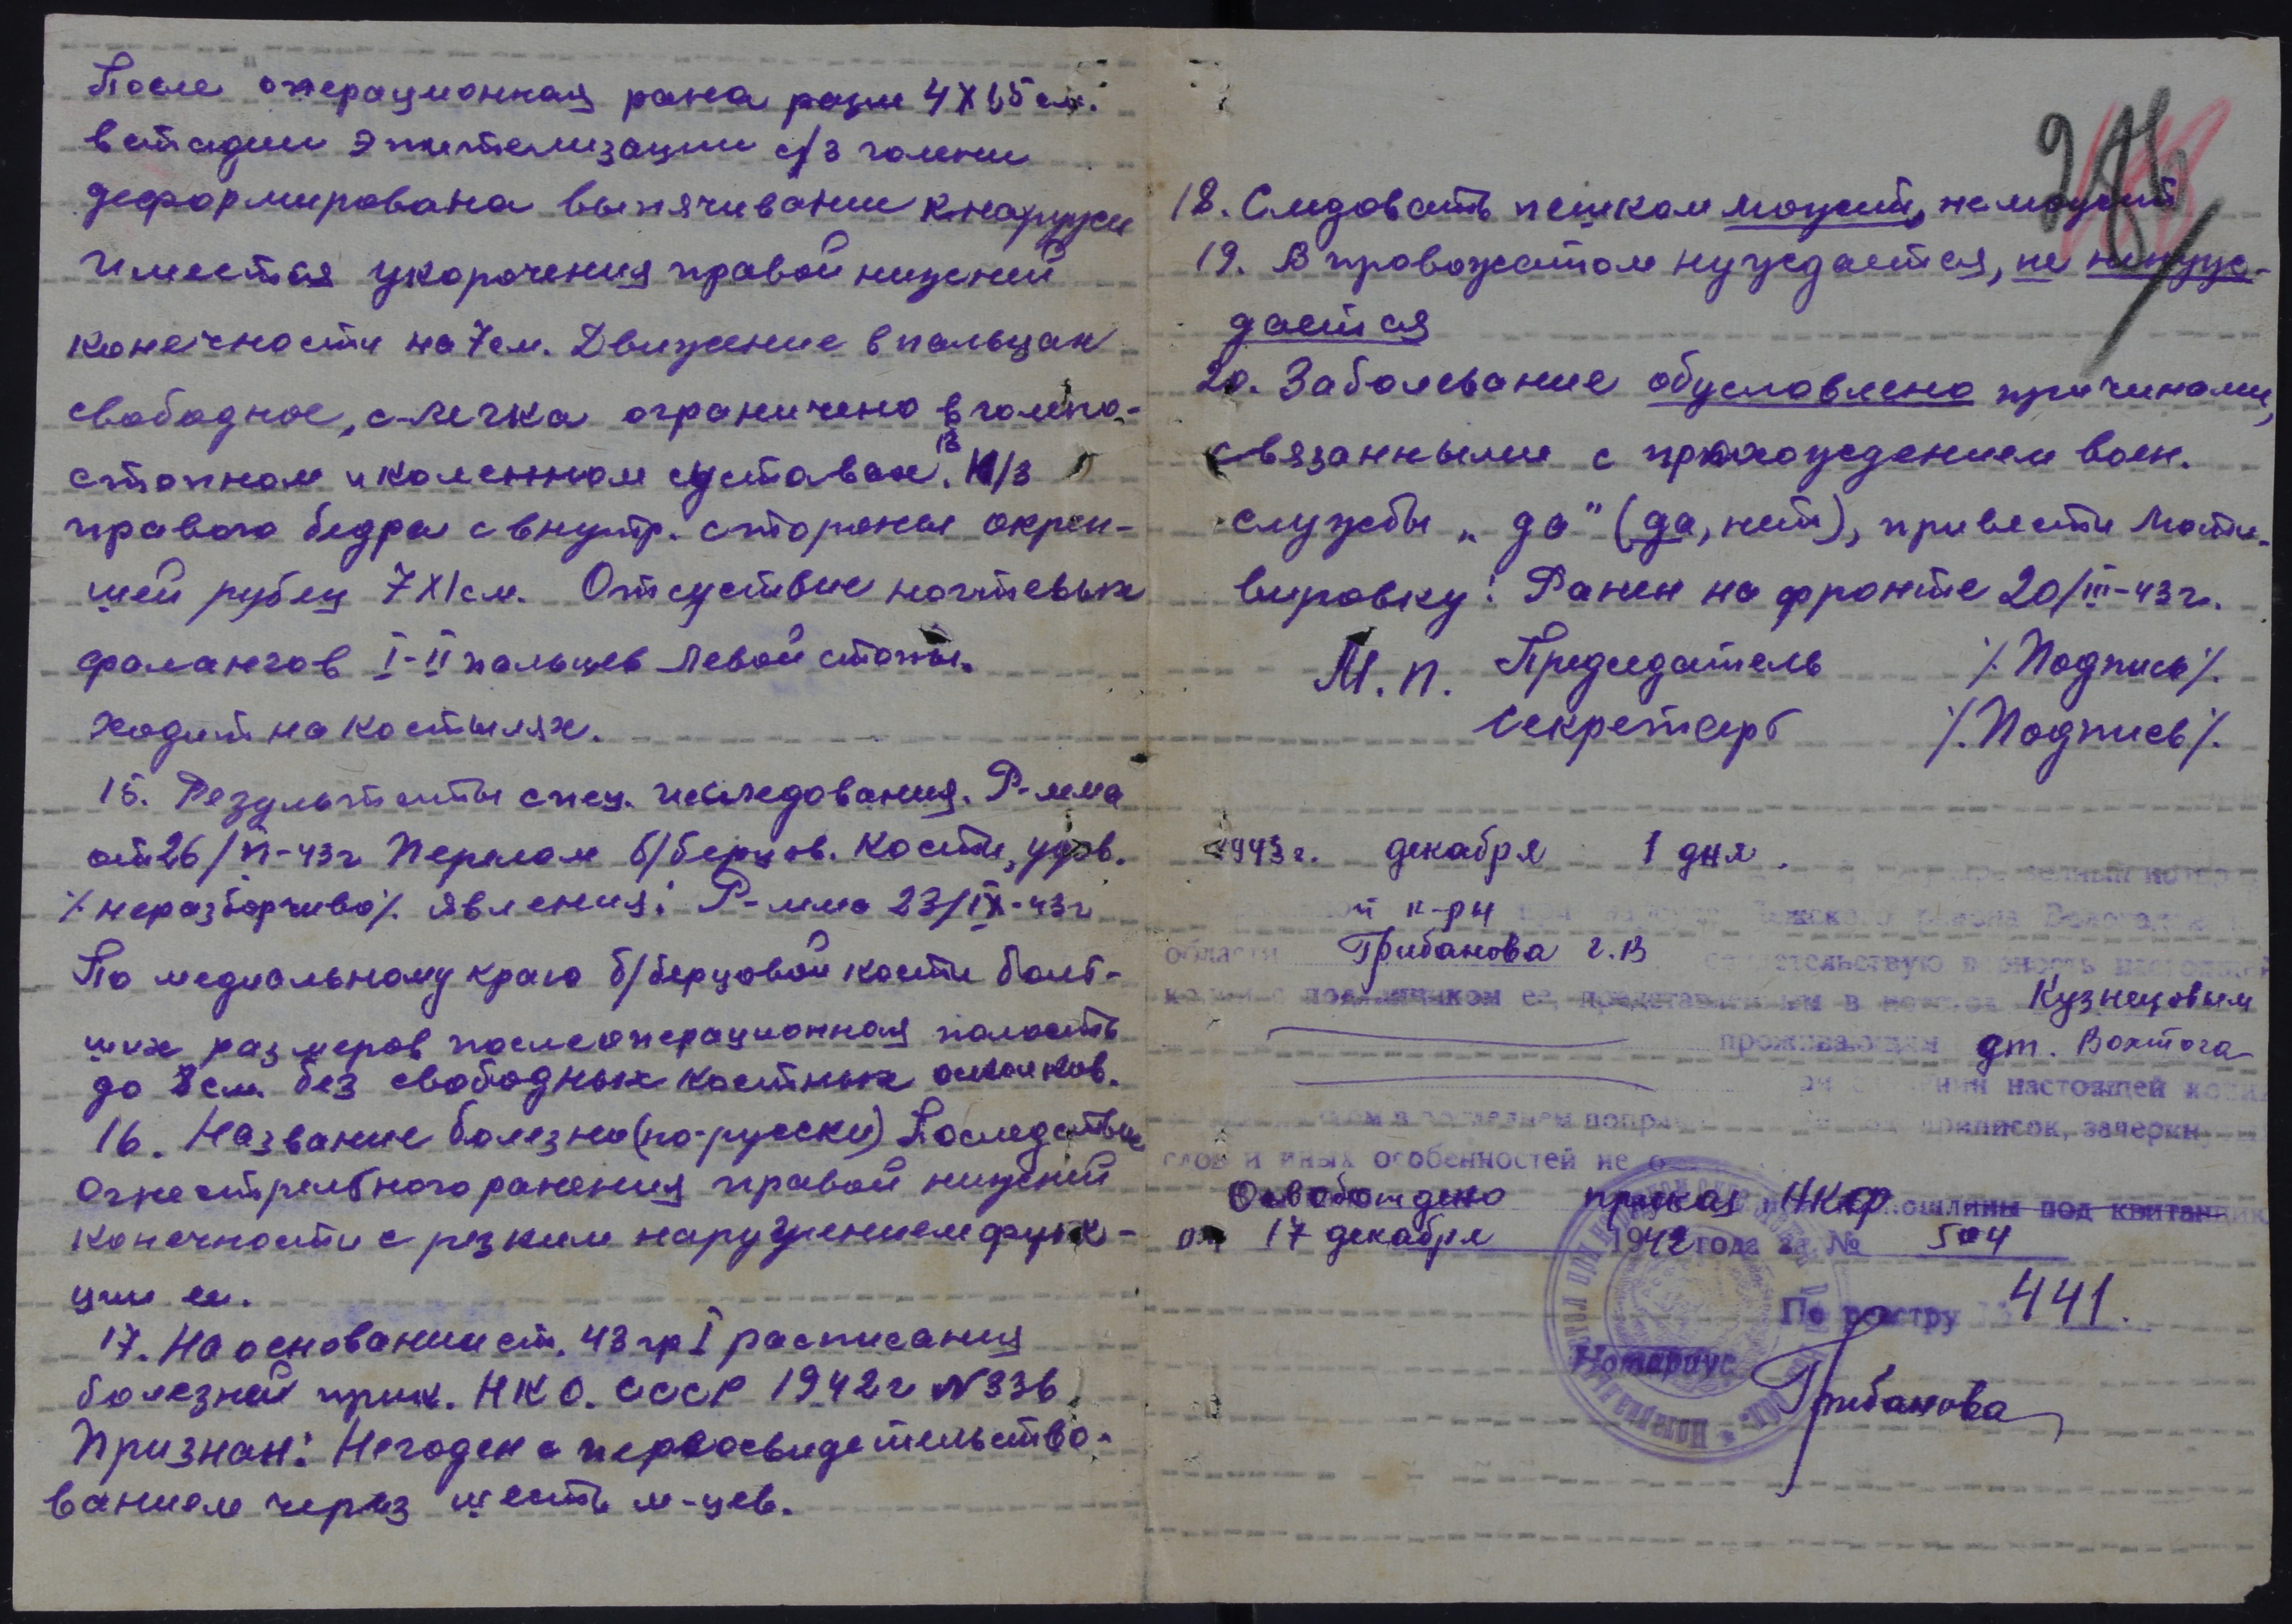 После операционная рана разм 4х1,5 см.
в стадии эпителизации с/3 голени
деформирована выпячивание кнаружи
Имеется укорочения правой нижней
конечности на 7 см. Движение в пальцах
свободное, с-легка ограничено в голено-
стопном и коленном суставах. В Н/3
правого бедра с внутр. стороны окреп-
шей рубец 7х1 см. Отсуствие ногтевых
фалангов I-II пальцев левой стопы.
Ходит на костылях.
15. Результаты спец. исследования. Р-мма
от 26/VI-43г Перелом б/берцов. кости, удов.
/.неразборчиво/. явления: Р-мма 23/IX-43г
По медиальному краю б/берцовой кости боль-
ших размеров послеоперационная полость
до 8 см. без свободных костных осколков.
16. Название болезни (по-русски) Последствие
Огнестрельного ранения правой нижней
конечности с резким нарушением функ-
ции ее.
17. На основании ст. 43 гр I расписания
болезней прик. НКО. СССР 1942г N 336
Признан: Негоден с переосвидетельство-
ванием через шесть м-цев.
285
18. Следовать пешком может, не может
19. В провожатом нуждается, не нуж-
дается
20. Заболевание обусловлено причинами,
связанными с прохождением воен.
службы „да" (да, нет), привести моти-
вировку: Ранен на фронте 20/III-43г.
М.П. Председатель /.Подпись/.
Секретарь /.Подпись/.
1943г. декабря 1 дня.
района
области Грибанова Г.В свидетельствую верность настоящей
копии с подлинником ее, представленным в Кузнецовым
проживающим дт. Вохтога
настоящей копии
в последнем приписок, зачеркн
слов и иных особенностей не
Освобождено приказ НКФ пошлины под квитанции
от 17 декабря 1942 года за № 504
По реестру № 441.
Нотариус Грибанова